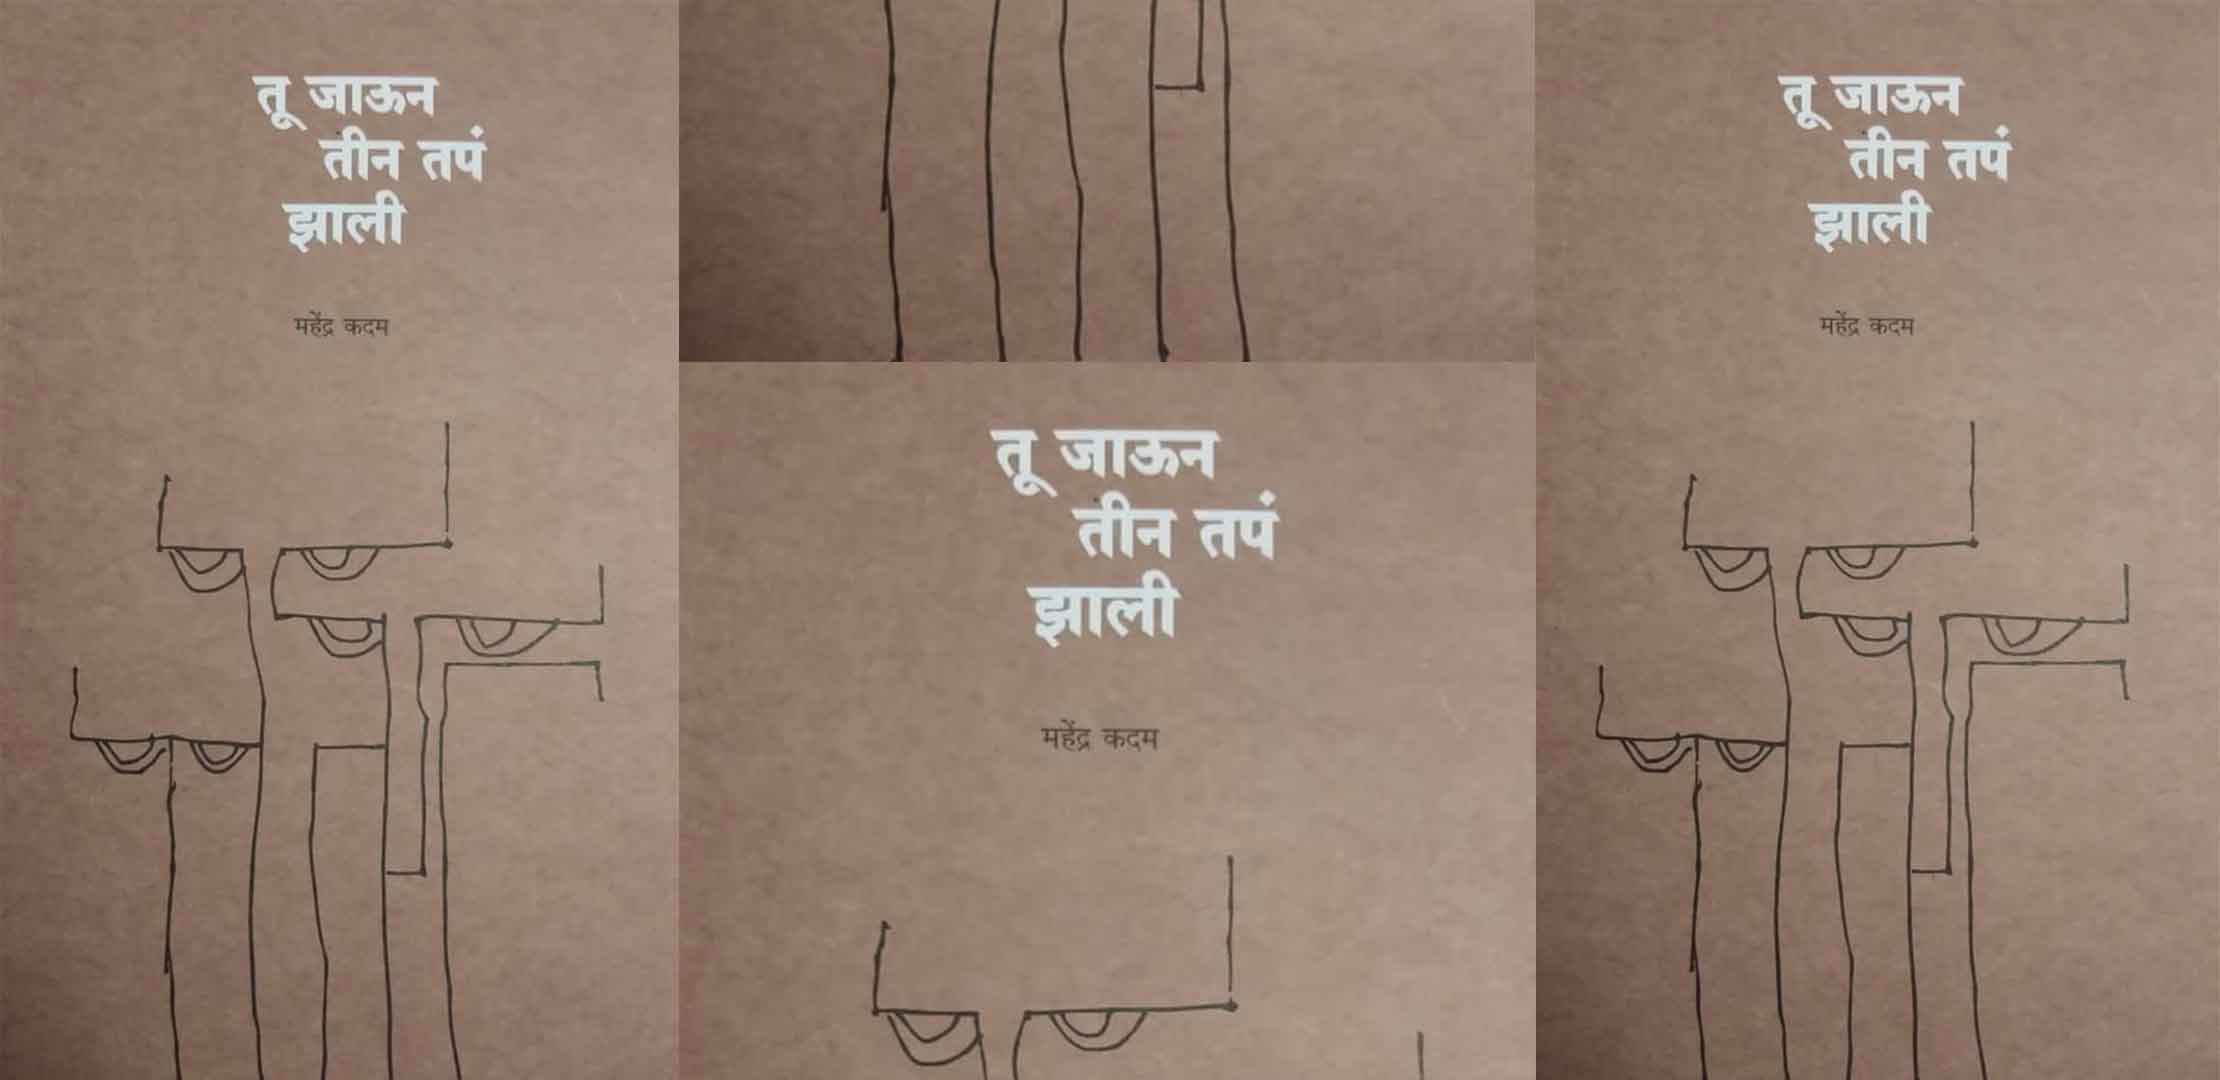 तू जाऊन
तीन तपं
झाली
महेंद्र कदम
तू जाऊन
तीन तपं
झाली
महेंद्र कदम
तू जाऊन
तीन तपं
झाली
महेंद्र कदम